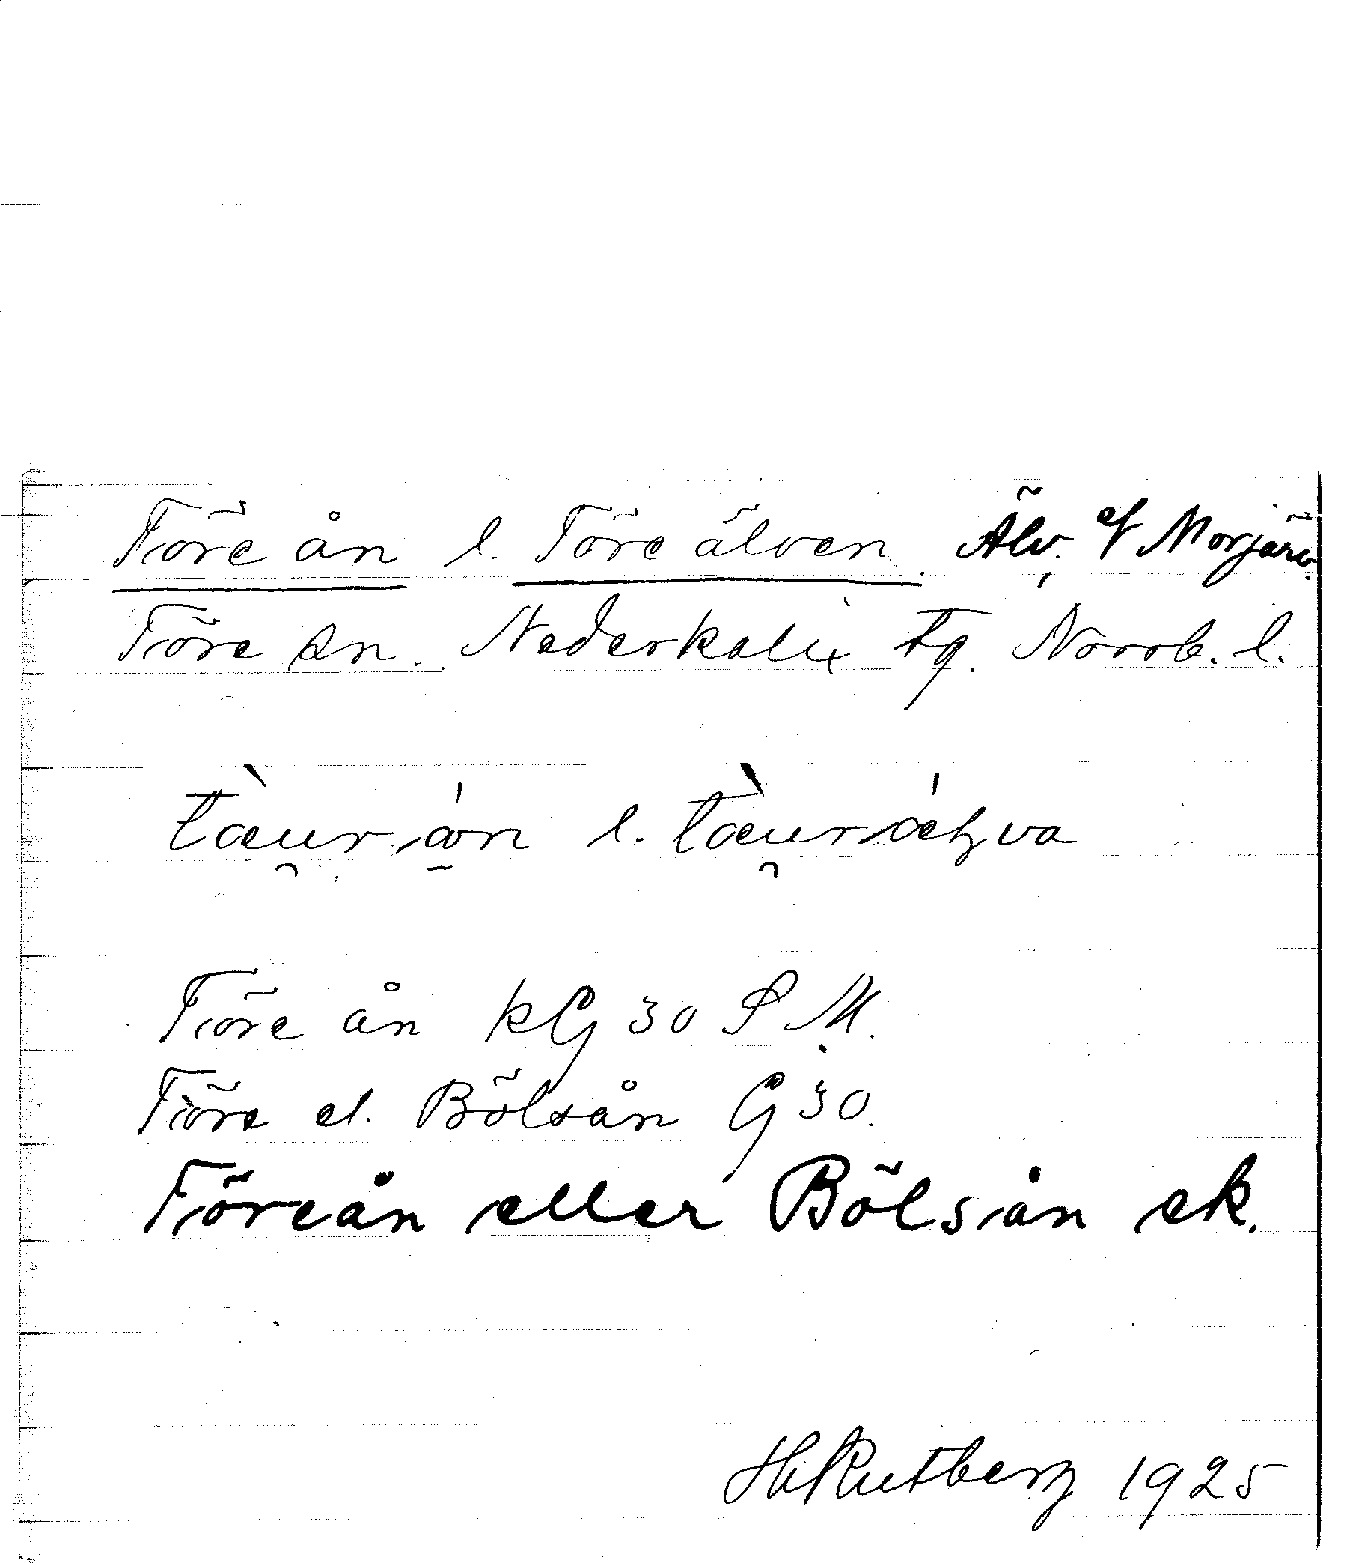 Töre ån l. Töre älven. Älv. af Morjärv.
Töre sn. Nederkalix tg. Norrb. l.
tæ̀u̯rån l. tæ̀u̯rælva
Töre ån kG 30 S M.
Töre el. Bölsån G 30.
Töreån eller Bölsån ek.
H Rutberg 1925